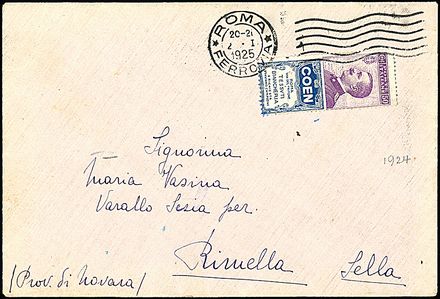 ROMA
20-21
2 · I
1925
FERROVIA
COEN
TESSUTI
BIANCHERIA
1924
Signorina
Maria Vasina
Varallo Sesia per
Rimella Sella
/Prov. di Novara/